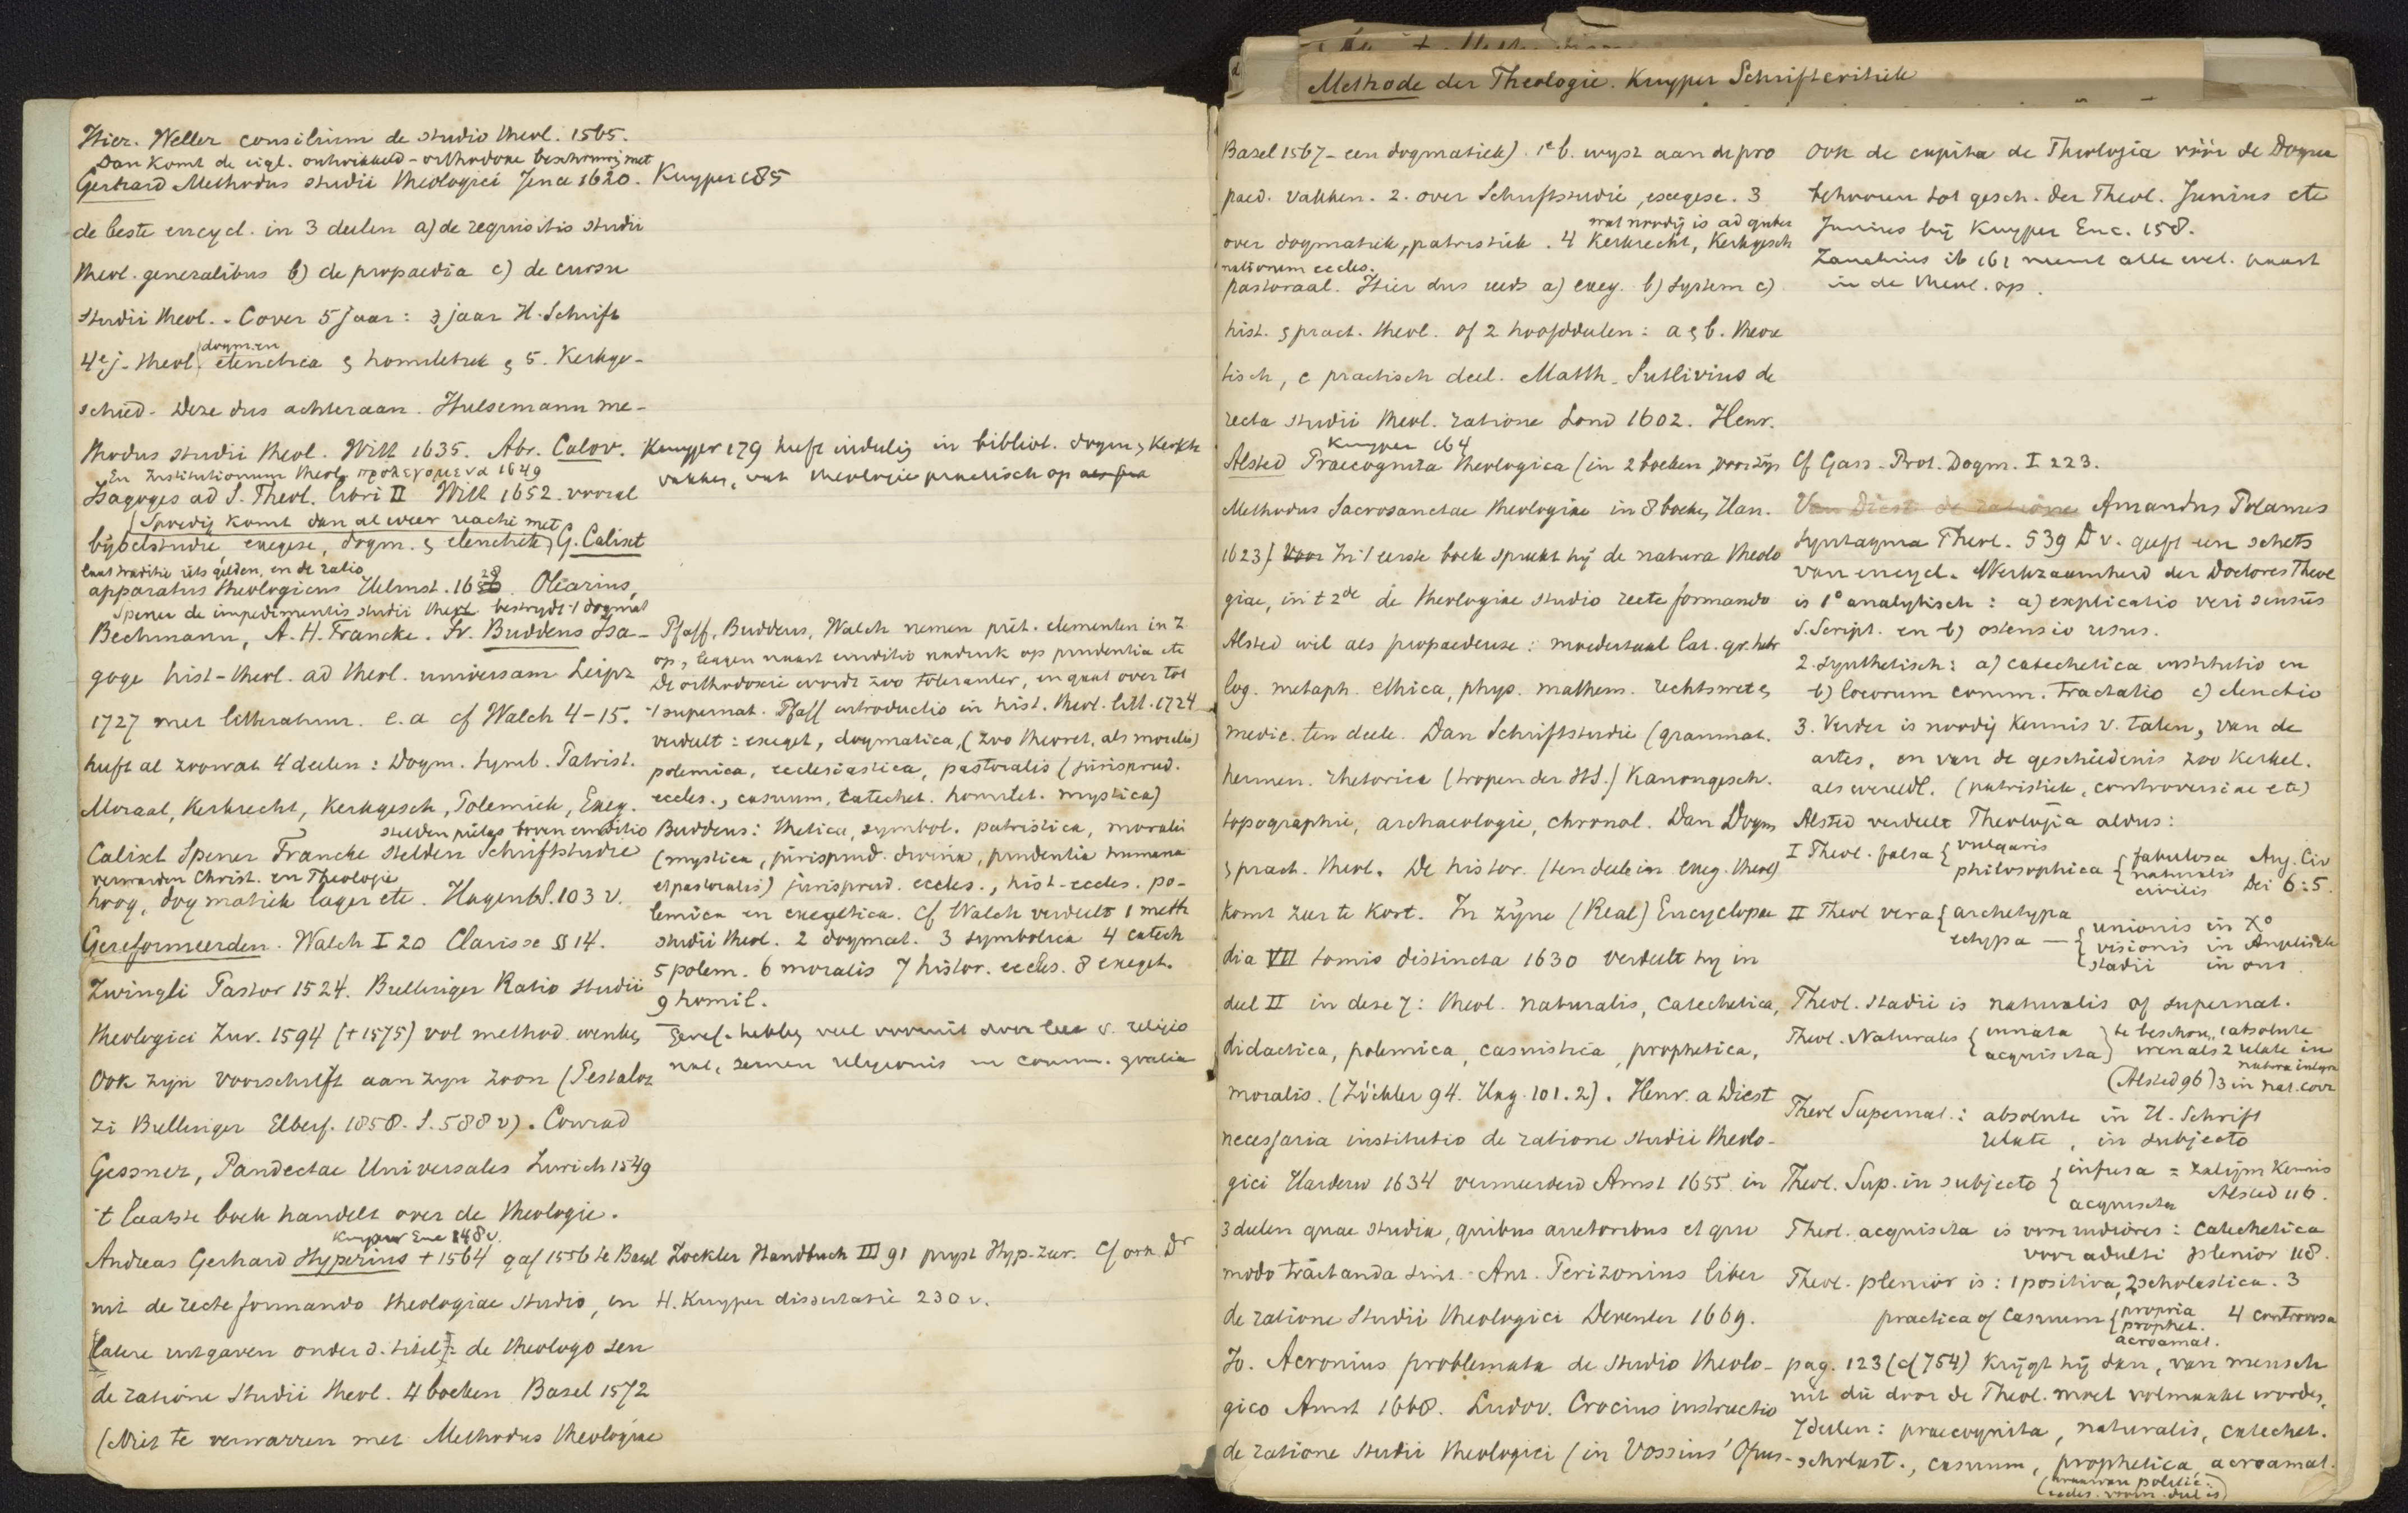 Hier. Weller consilium de studio theol. 1565.
Dan komt de eigl. ontwikkeld-orthodoxe beschouwing met
Gerhard Methodus studii theologici Jena 1620.
de beste encycl. in 3 deelen a) de requisitis studii
theol. generalibus b) de propaedia c) de cursu
studii theol. - C over 5 jaar: 3 jaar H. Schrift
dogm. en
4e j. theol. elenctica & homiletiek & 5. Kerkge-
schied. Deze dus achteraan. Hulsemann me-
thodus studii theol. Witt 1635. Abr. Calov.
En Institutionum theol. προλεγομενα 1649
Isagoges ad S. Theol. libri II Witt 1652. vooral
(Spoedig komt dan al weer reactie met
bijbelstudie, exegese, dogm. & elenctiek) G. Calixt
laat traditie iets gelden, en de ratio
apparatus theologicus Helmst. 1628. Olearius,
Spener de impedimentis studii theol. bestrydt 't dogmat
Bechmann, A. H. Francke. Fr. Buddeus Isa-
goge hist-theol. ad theol. universam Leipz
1727 met litteratuur. e.a cf Walch 4-15.
heeft al zoowat 4 deelen: Dogm. Symb. Patrist.
Moraal, Kerkrecht, Kerkgesch, Polemiek, Exeg.
stelden pietas boven eruditio
Calixt Spener Francke stelden Schriftstudie
verwarden Christ. en Theologie
hoog, dogmatiek lager etc. Hagenb. S. 103 v.
Gereformeerden. Walch I 20 Clarisse § 14.
Zwingli Pastor 1524. Bullinger Ratio studii
theologici Zur. 1594 († 1575) vol method. wenken
Ook zijn voorschrift aan zijn zoon (Pestaloz
zi Bullinger Elberf. 1858. S. 588 v). Conrad
Gessner, Pandectae Universales Zurich 1549
't laatste boek handelt over de theologie.
Kuyper Enc 148 v.
Andreas Gerhard Hyperius † 1564 gaf 1556 te Basel
uit de recte formando theologiae studio, en
(latere uitgaven onder d. titel: de theologo seu
de ratione studii theol. 4 boeken Basel 1572
(Niet te verwarren met Methodus theologiae
Kuyper 185
Kuyper 179 heeft indeling in bibliot. dogm, Kerkh
vakken, vat theologie practisch op
Pfaff, Buddeus, Walch nemen piët. elementen in z
op, leggen naast eruditio nadruk op prudentia etc
De orthodoxie wordt zoo toleranter, en gaat over tot
't supernat. Pfaff introductio in hist. theol. litt. 1724
verdeelt: exeget, dogmatica, (zoo theoret. als moralis)
polemica, ecclesiastica, pastoralis (jurisprud.
eccles., casuum, catechet. homilet. mystica)
Buddeus: thetica, symbol. patristica, moralis
(mystica, jurisprud. divina, prudentia humana
et pastoralis) jurisprud. eccles., hist-eccles. po-
lemica en exegetica. Cf Walch verdeelt 1 meth
studii theol. 2 dogmat. 3 symbolica 4 catech
5 polem. 6 moralis 7 histor. eccles. 8 exeget.
9 homil.
Geref. hebben veel vooruit door leer v. religio
nat., semen religionis en comm. gratia
Zockler Handbuch III 91 pryst Hyp. zeer. Cf ook Dr
H. Kuyper dissertatie 230 v.
Methode der Theologie. Kuyper Schriftcritiek
Basel 1567 - een dogmatiek). 1e b. wyst aan de pro
paed. vakken. 2. over Schriftstudie, exegese. 3
wat noodig is ad guber
over dogmatiek, patristiek. 4 Kerkrecht, Kerkgesch
nationem eccles.
pastoraal. Hier dus reeds a) exeg. b) system c)
hist. & pract. theol. of 2 hoofddeelen: a & b. theore
tisch, c practisch deel. Matth. Sutlivius de
recta studii theol. ratione Lond 1602. Henr.
Kuyper 164
Alsted Praecognita theologica (in 2 boeken,
Methodus Sacrosanctae theologiae in 8 boeken Han.
1623). In 't eerste boek spreekt hij de natura theolo
giae, in 't 2de de theologiae studio recte formando
Alsted wil als propaedeuse: moedertaal Lat. gr. hebr
log. metaph. ethica, phys. mathem. rechtswet.
medic. ten deele. Dan Schriftstudie (grammat.
hermen. rhetorica (tropen der HS.) Kanongesch.
topographie, archaeologie, chronol. Dan Dogm
& pract. theol. De histor. (ten deele in exeg. theol)
komt zeer te kort. In zijne (Real) Encyclopae
dia VII tomis distincta 1630 verdeelt hij in
deel II in deze 7: theol. naturalis, catechetica,
didactica, polemica, casuistica, prophetica,
moralis. (Zöckler 94. Hag. 101. 2). Henr. a Diest
necessaria institutio de ratione studii theolo-
gici Harderw 1634 vermeerderd Amst 1655. in
3 deelen quae studia, quibus auctoribus et quo
modo tractanda sint. Ant. Perizonius liber
de ratione studii theologici Deventer 1669.
Jo. Acronius problemata de studio theolo-
gico Amst 1668. Ludov. Crocius instructio
de ratione studii theologici (in Vossius' Opus-
Ook de capita de Theologia vóór de Dogm
behooren tot gesch. der Theol. Junius etc
Junius bij Kuyper Enc. 158.
Zanchius ib 161 neemt alle wet. naast
in de theol. op.
Cf Gass. Prot. Dogm. I 223.
Van Diest de ratione Amandus Polanus
Syntagma Theol. 539 D v. geeft een schets
van encycl. Werkzaamheid der Doctores Theol
is 1° analytisch: a) explicatio veri sensus
S. Script. en b) ostensio usus.
2. synthetisch: a) catechetica institutio en
b) locorum comm. tractatio c) elenctio
3. Verder is noodig kennis v. talen, van de
artes, en van de geschiedenis zoo kerkel.
als wereldl. (patristiek, controversiae etc)
Alsted verdeelt Theologia aldus:
I Theol. falsa { vulgaris
philosophica { fabulosa naturalis civilis Aug. Civ Dei 6:5.
II Theol vera { archetypa
ectypa — { unionis in Xo
visionis in Angelis etc
stadii in ons.
Theol. stadii is naturalis of supernat.
Theol. Naturalis { innata acquisita } te beschouwen als 1 absolute
2 relate in natura integra
(Alsted 96) 3 in nat. corr
Theol Supernat.: absolute in H. Schrift
relate, in subjecto
Theol. Sup. in subjecto { infusa = zaligm kennis
acquisita Alsted 116.
Theol. acquisita is voor rudiores: catechetica
voor adulti plenior 118.
Theol. plenior is: 1 positiva, 2 scholastica. 3
practica of casuum { propria prophet. acroamat. 4 controversa
pag. 123 (cf 754) krijgt hij dan, van mensch
uit die door de Theol. moet volmaakt worden,
7 deelen: praecognita, naturalis, catechet.
scholast., casuum, prophetica, acroamat.